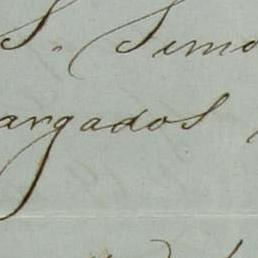 S. Simo
argados